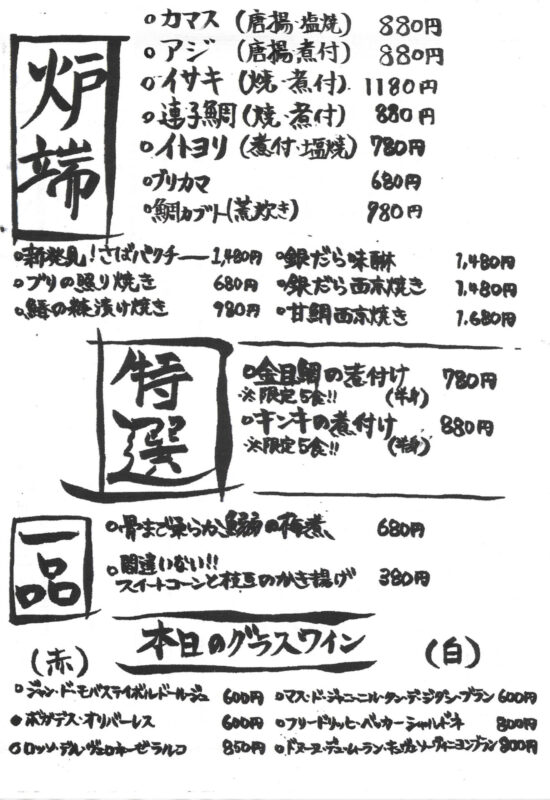 炉端
○カマス(唐揚・塩焼) 880円
○アジ(唐揚・煮付) 880円
○イサキ(焼・煮付) 1180円
○連子鯛(焼・煮付) 880円
○イトヨリ(煮付・塩焼) 780円
○ブリカマ 680円
○鯛カブト(荒炊き) 980円
○新発見!さばパクチー 1,480円
○ブリの照り焼き 680円
の糠漬け焼き 980円
○銀だら味醂 1,480円
○銀だら西京焼き 1,480円
○甘鯛西京焼き 1,680円
特選
○金目鯛の煮付け 780円
※限定5食!! (半身)
○キンキの煮付け 880円
※限定5食!! (半身)
一品
○骨まで柔らか の梅煮 680円
○間違いない!!
スイートコーンと枝豆のかき揚げ 380円
本日のグラスワイン
(赤)
○ジャン・ドーモパステイボルドールージュ 600円
○ボガデス・オリバーレス 600円
○ロッソ・デル・ヴェロネーゼラルコ 850円
(白)
○マス・ド・ジャニーニ・ル・タン・デ・ジタン・ブラン 600円
○フリードリッヒ・ベッカーシャルドネ 800円
ソーヴィニヨンブラン 800円